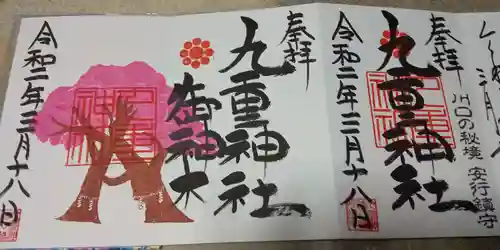 奉拝
九重神社
御神木
令和二年三月十八日
奉拝
九重神社
川口の秘境 安行鎮守
令和二年三月十八日